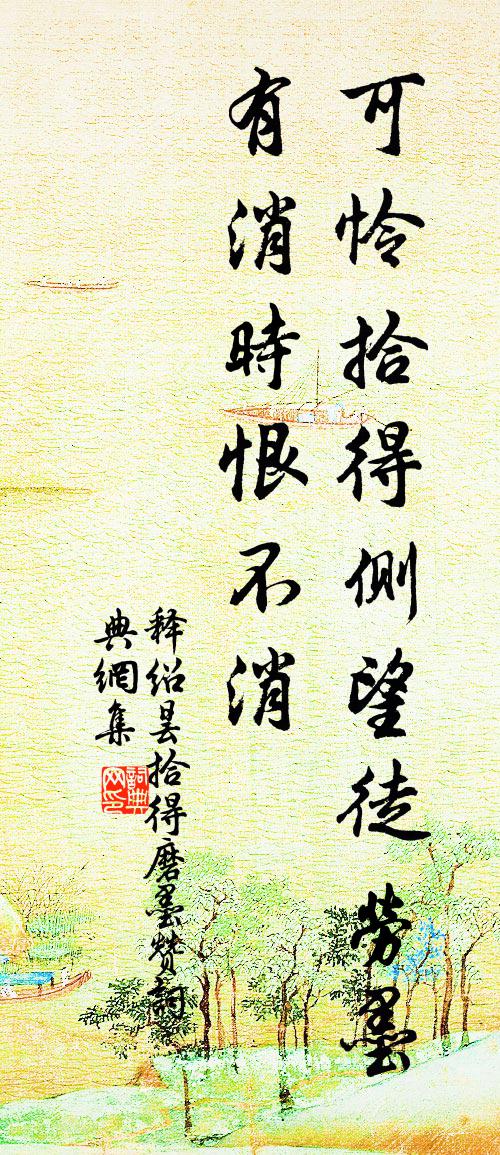 可怜拾得侧望徒劳墨
有消時恨不消
释绍昙拾得磨墨赞詞
典網集
詞典网印